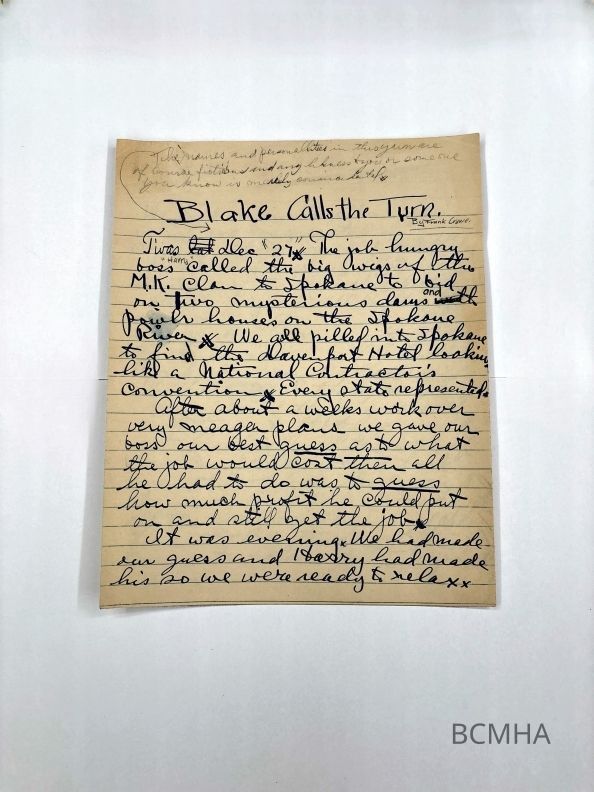 The names and personalities in this yarn are
of course fictious and any likeness to you or some one
you know is merely coincidental.
Blake Calls the Turn.
By Frank Crowe.
Twas Dec "27" x The job hungry
boss "Harry" called the big wigs of the
M.K. Clan to Spokane to bid
on two mysterious dams and
power houses on the Spokane
River x We all pilled into Spokane
to find the Davenport Hotel looking
like a National Contractor's
Convention x Every state represented x
After about a weeks work over
very meager plans we gave our
boss our best guess as to what
the job would cost then all
he had to do was to guess
how much profit he could put
on and still get the job x
It was evening x We had made
our guess and Harry had made
his so we were ready to relax x
BCMHA